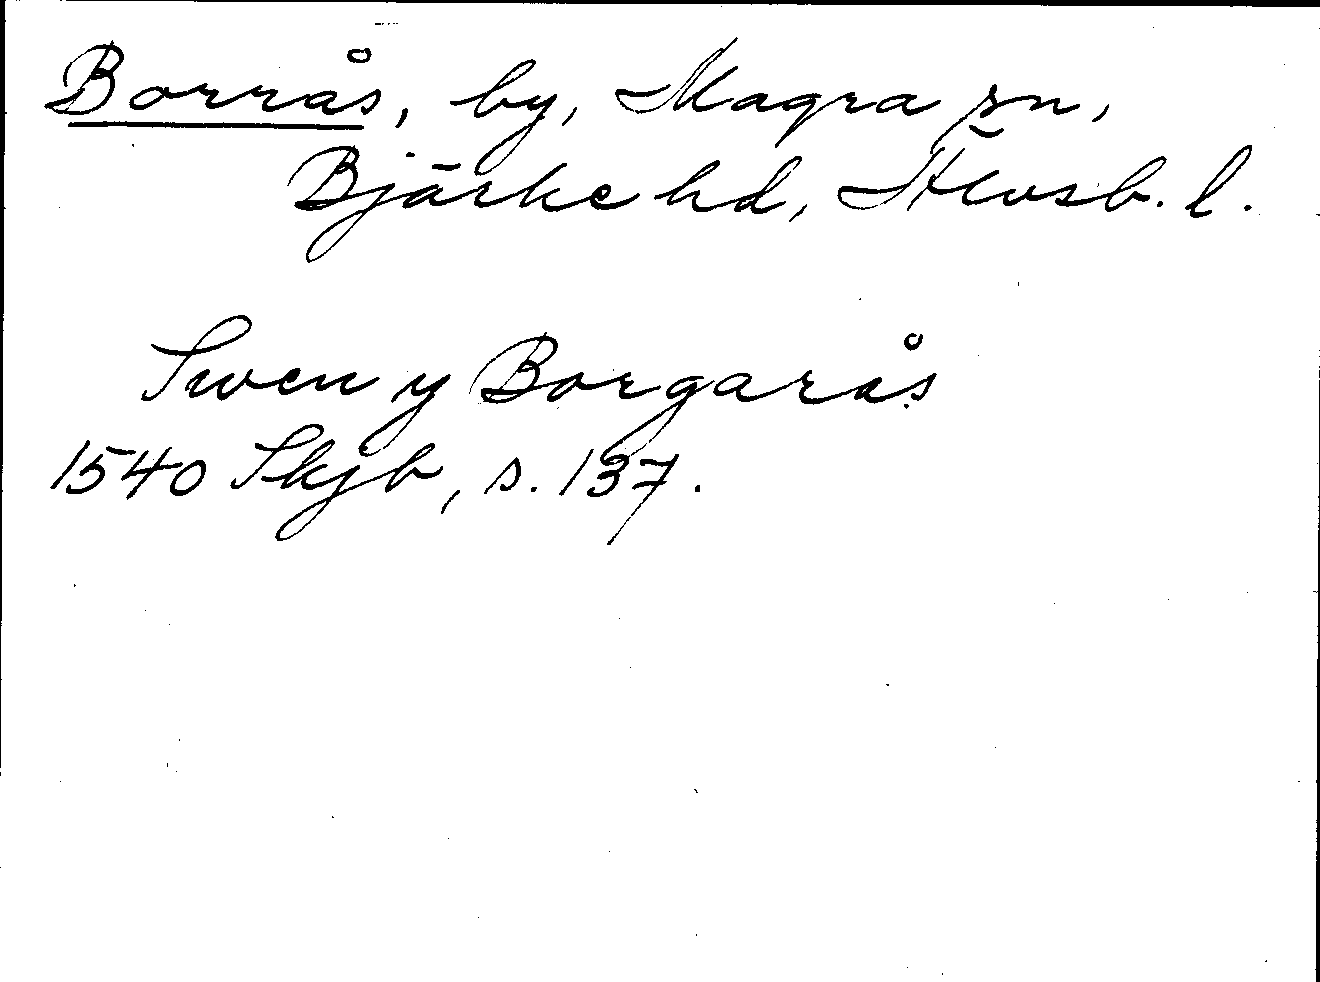 Borrås, by, Magra sn,
Bjärke hd, Älvsb. l.
Swen y Borgarås
1540 Skjb, s. 137.